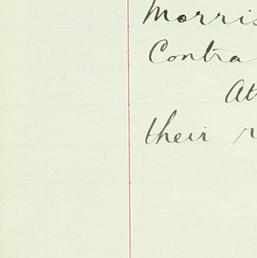 Morris
Contra
At
their r